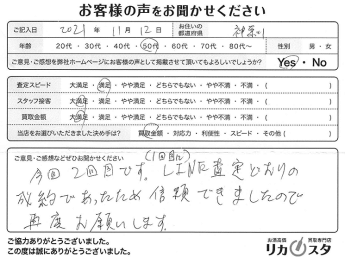 お客様の声をお聞かせください
ご記入日 2021年 11月 12日 お住いの都道府県 神奈川
年齢 20代・30代・40代・50代・60代・70代・80代〜 性別 男・女
ご意見・ご感想を弊社ホームページにお客様の声として掲載させて頂いてもよろしいでしょうか? Yes・No
査定スピード 大満足・満足・やや満足・どちらでもない・やや不満・不満・( )
スタッフ接客 大満足・満足・やや満足・どちらでもない・やや不満・不満・( )
買取金額 大満足・満足・やや満足・どちらでもない・やや不満・不満・( )
当店をお選びいただきました決め手は? 買取金額・対応力・利便性・スピード・その他( )
ご意見・ご感想などぜひお聞かせください
(1回目に)
今回2回目です。LINE査定どおりの
成約であったため信頼できましたので
再度お願いします。
ご協力ありがとうございました。
この度は誠にありがとうございました。
お酒高価買取専門店
リカスタ